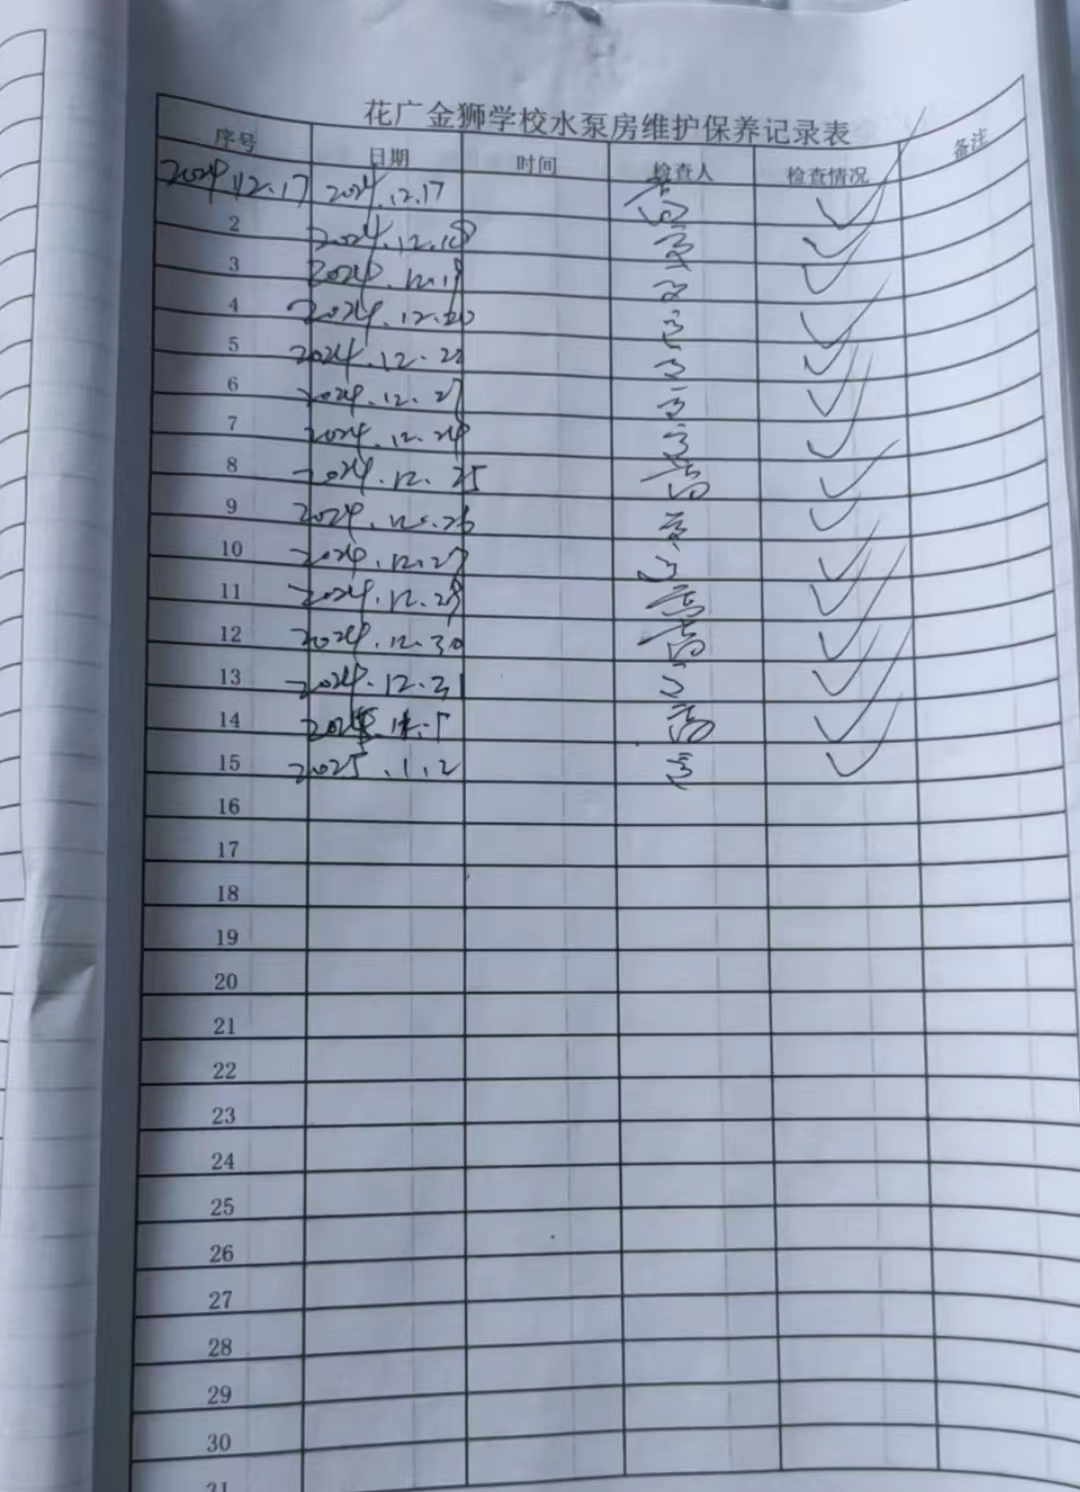 花广金狮学校水泵房维护保养记录表
序号 日期 时间 检查人 检查情况 备注
2024.12.17 2024.12.17 ✓
2 2024.12.18 ✓
3 2024.12.19 ✓
4 2024.12.20 ✓
5 2024.12. ✓
6 2024.12. ✓
7 2024.12.24 ✓
8 2024.12.25 高 ✓
9 2024.12.26 ✓
10 2024.12.27 ✓
11 2024.12. ✓
12 2024.12.30 高 ✓
13 2024.12.31 ✓
14 2025.1. 高 ✓
15 2025.1.2 ✓
16
17
18
19
20
21
22
23
24
25
26
27
28
29
30
31